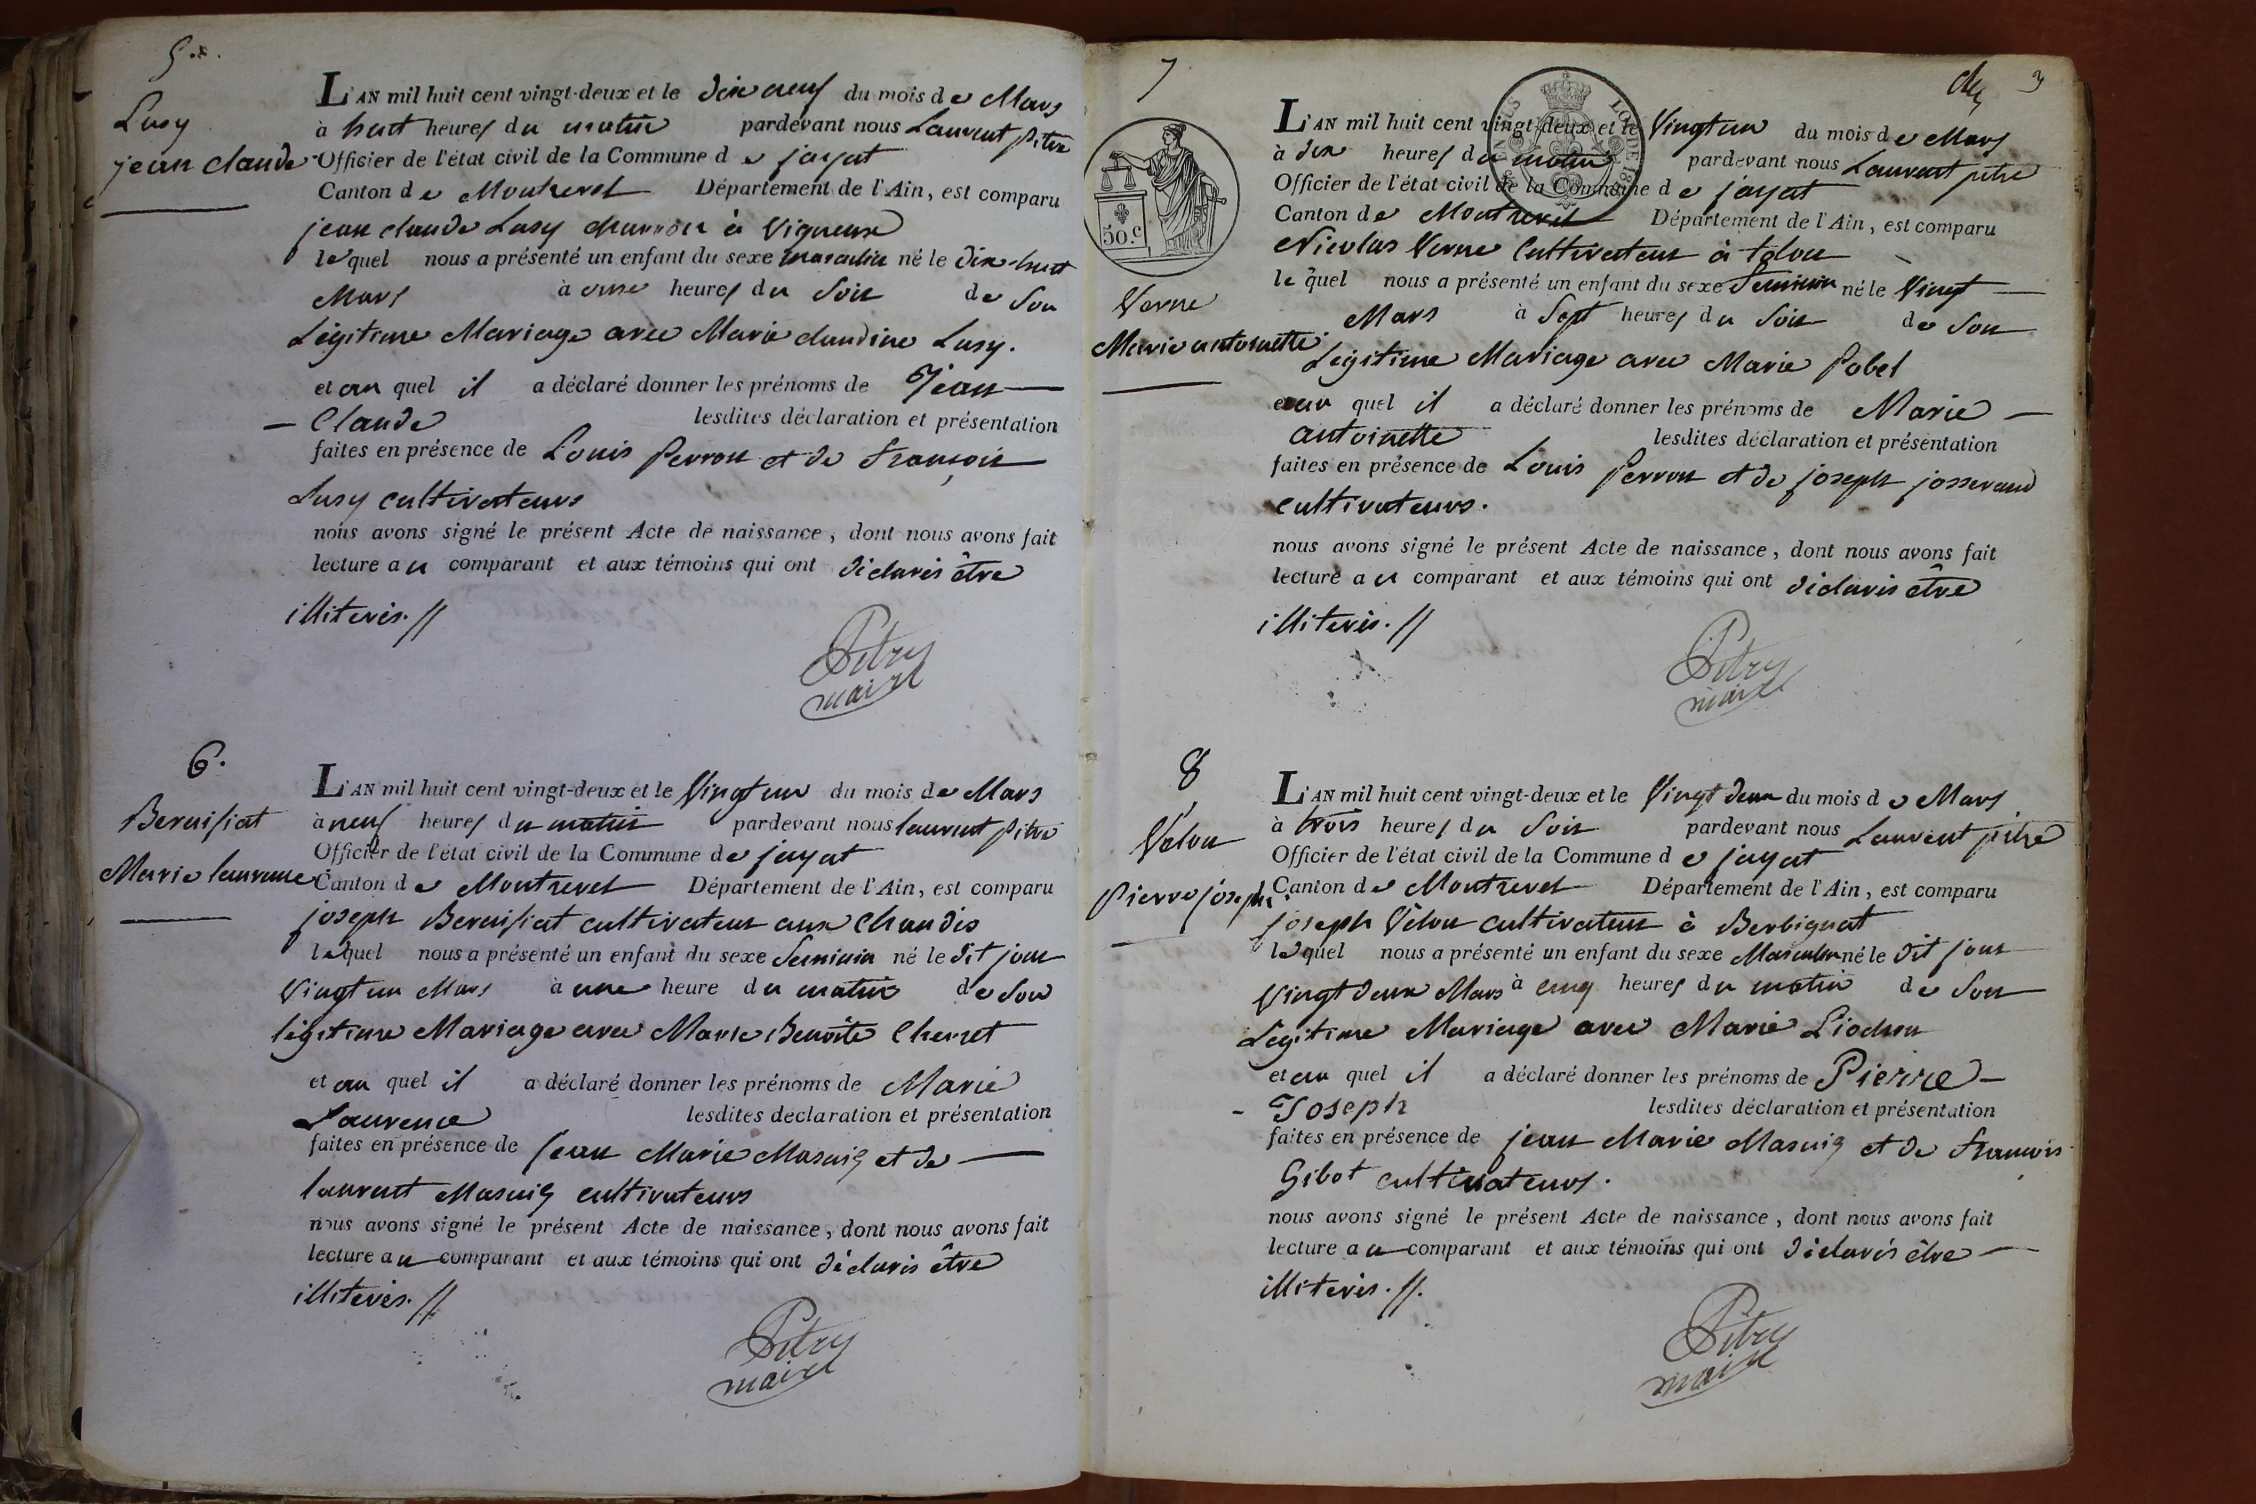 5.
Lusy
jean claude
L'AN mil huit cent vingt-deux et le dix neuf du mois de Mars
à huit heures du matin pardevant nous Laurent pitre
Officier de l'état civil de la Commune de jayat
Canton de Montrevel Département de l'Ain, est comparu
jean claude Lusy charron à Vigneux
lequel nous a présenté un enfant du sexe masculin né le dix-huit
Mars à onze heures du Soir de Son
Légitime Mariage avec Marie claudine Lusy.
et au quel il a déclaré donner les prénoms de Jean
Claude lesdites déclaration et présentation
faites en présence de Louis perron et de françois
Lusy cultivateurs
nous avons signé le présent Acte de naissance, dont nous avons fait
lecture au comparant et aux témoins qui ont déclarés être
illiterés. //
Pitre
maire
6.
Beraifiat
Marie laurence
L'AN mil huit cent vingt-deux et le Vingt un du mois de Mars
à neuf heures du matin pardevant nous laurent pitre
Officier de l'état civil de la Commune de jayat
Canton de Montrevel Département de l'Ain, est comparu
joseph cultivateur aux Chaudis
lequel nous a présenté un enfant du sexe feminin né le dit jour
Vingt un Mars à une heure du matin de Son
légitime Mariage avec Marie Benoite
et au quel il a déclaré donner les prénoms de Marie
Laurence lesdites déclaration et présentation
faites en présence de jean Marie Masuis et de
laurent Masuis cultivateurs
nous avons signé le présent Acte de naissance, dont nous avons fait
lecture au comparant et aux témoins qui ont déclarés être
illiterés. //
Pitre
maire
7
3
50.c
Verne
Marie antoinette
L'AN mil huit cent vingt-deux et le Vingt un du mois de Mars
à dix heures du matin pardevant nous Laurent pitre
Officier de l'état civil de la Commune de jayat
Canton de Montrevel Département de l'Ain, est comparu
Nicolas Verne Cultivateur à tolou
le quel nous a présenté un enfant du sexe feminin né le Vingt
Mars à Sept heures du Soir de Son
Légitime Mariage avec Marie Pobel
et au quel il a déclaré donner les prénoms de Marie
antoinette lesdites déclaration et présentation
faites en présence de Louis perron et de joseph josserand
cultivateurs.
nous avons signé le présent Acte de naissance, dont nous avons fait
lecture au comparant et aux témoins qui ont déclarés être
illiterés. //
Pitre
maire
8
Velon
Pierre joseph
L'AN mil huit cent vingt-deux et le Vingt deux du mois de Mars
à trois heures du Soir pardevant nous Laurent pitre
Officier de l'état civil de la Commune de jayat
Canton de Montrevel Département de l'Ain, est comparu
joseph Vélon cultivateur à Berbignat
lequel nous a présenté un enfant du sexe Masculin né le dit jour
Vingt deux Mars à cinq heures du matin de Son
Légitime Mariage avec Marie Liochon
et au quel il a déclaré donner les prénoms de Pierre
Joseph lesdites déclaration et présentation
faites en présence de jean Marie Masuis et de françois
Gibot cultivateurs.
nous avons signé le présent Acte de naissance, dont nous avons fait
lecture au comparant et aux témoins qui ont déclarés être
illiterés. //.
Pitre
maire